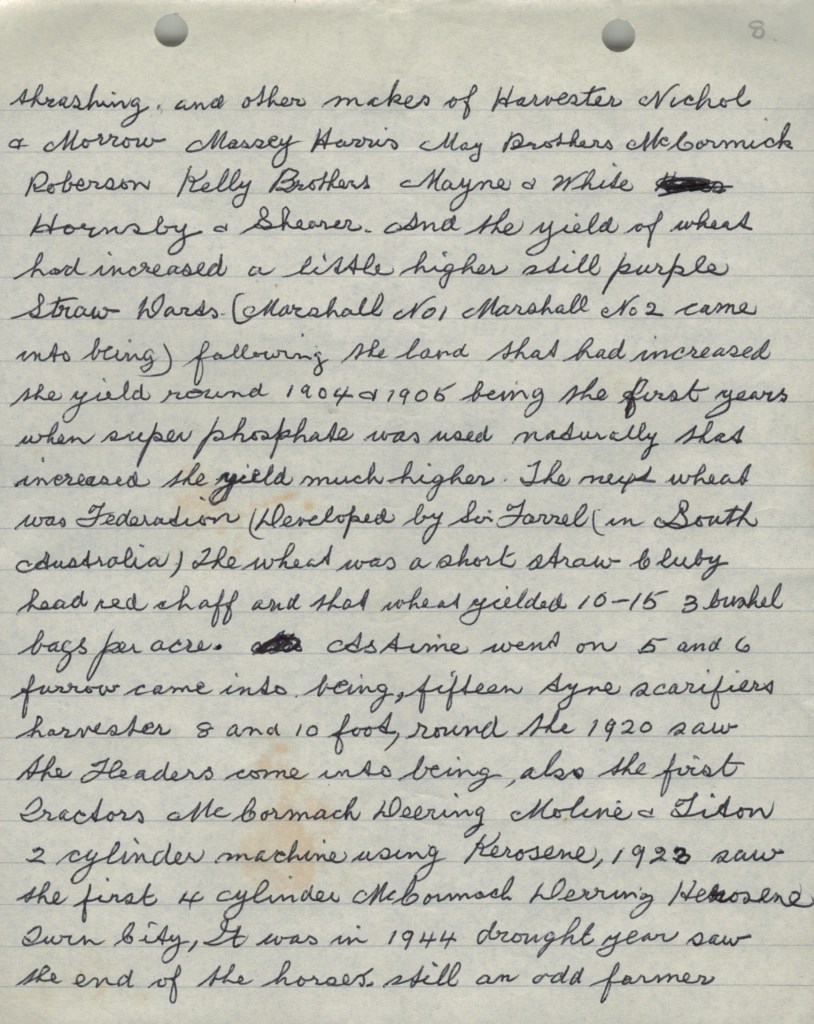 8
thrashing. and other makes of Harvester Nichol
& Morrow Massey Harris May Brothers McCormick
Roberson Kelly Brothers Mayne & White
Hornsby & Shearer. And the yield of wheat
had increased a little higher still purple
Straw Wards. (Marshall No1 Marshall No 2 came
into being) fallowing the land that had increased
the yield round 1904 & 1905 being the first years
when super phosphate was used naturally that
increased the yield much higher. The next wheat
was Federation (Developed by Sir Farrel (in South
Australia) The wheat was a short straw cluby
head red chaff and that wheat yielded 10-15 3 bushel
bags per acre. As time went on 5 and 6
furrow came into being, fifteen tyne scarifiers
harvester 8 and 10 foot, round the 1920 saw
the Headers come into being, also the first
Tractors McCormach Deering Moline & Titon
2 cylinder machine using Kerosene, 1923 saw
the first 4 cylinder McCormach Derring Kerosene
Twin City, It was in 1944 drought year saw
the end of the horses. still an odd farmer